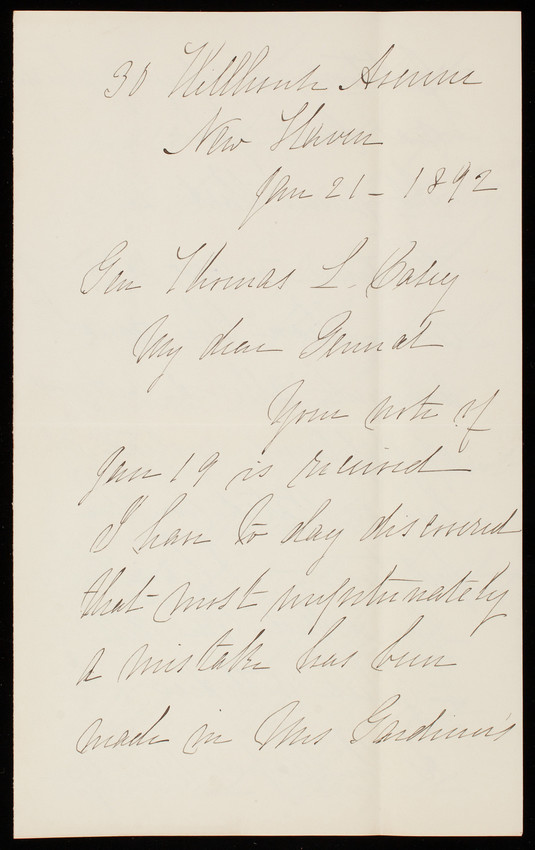 30 Hillhouse Avenue
New Haven
Jan 21 - 1892
Gen Thomas L. Casey
My dear General
Your note of
Jan 19 is received
I have to day discovered
that most unfortunately
a mistake has been
made in Mrs Gardiner's